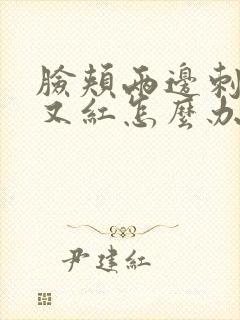 臉頰兩邊刺
又紅怎麼办
尹建紅